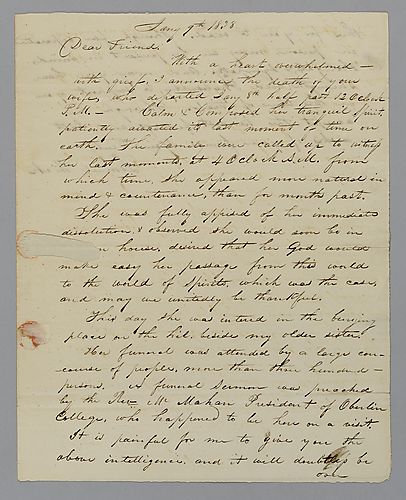 Jany 9th 1838
Dear Friend,
With a heart overwhelmed –
with grief, I announce the death of your
wife, who departed Jany 8th half past 12 Oclock
P.M. – Calm & Composed her tranquil spirit
patiently awaited its last moment of time on
earth. The familie were called up to witness
her last moments, at 4 Oclock A.M. from
which time, she appeared more natural in
mind & countenance, than for months past.
She was fully apprised of her immediate
dissolution, & observed she would soon be in
house, desired that her God would
make easy her passage from this world
to the world of Spirits, which was the case,
and may we unitedly be thankful.
This day she was intered in the burying
place on the hil, beside my older sister.
Her funeral was attended by a large con-
course of people, more than three hundred –
persons. A funeral sermon was preached
by the Rev Mr Mahan President of Oberlin
College, who happened to be here on a visit
It is painful for me to give you the
above intelligence, and it will doubtless be